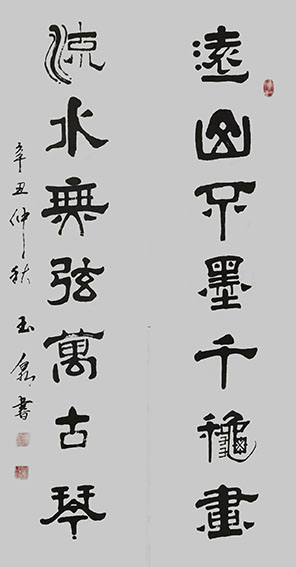 遠山不墨千龝畫
流水無弦萬古琴
辛丑仲秋 玉書